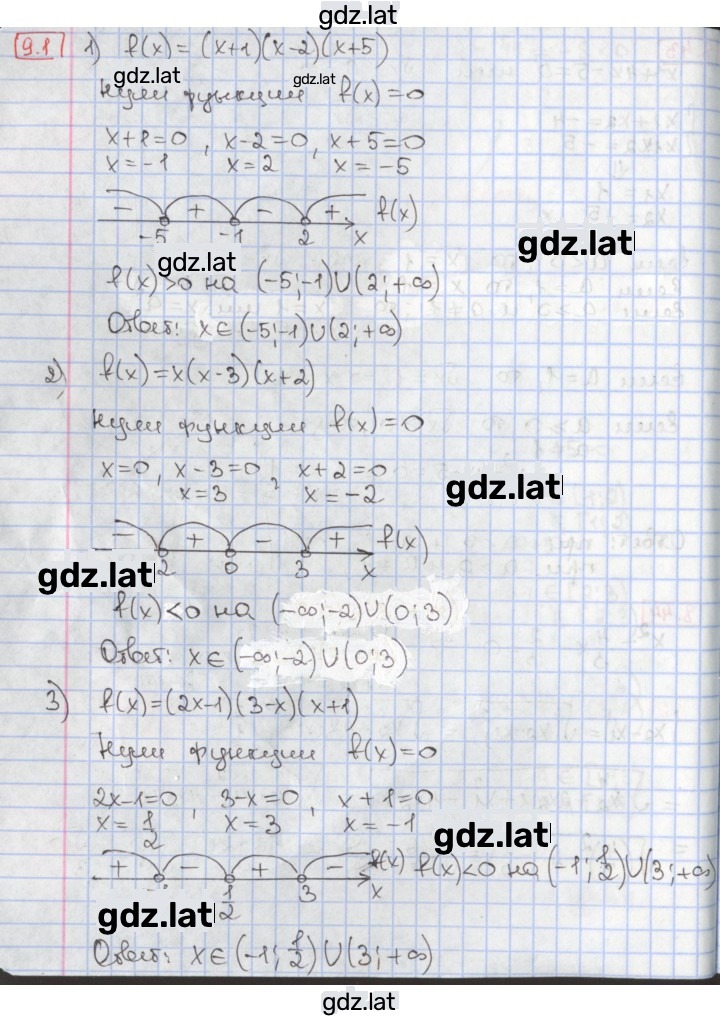 gdz.lat
9.1 1) f(x) = (x+1)(x-2)(x+5)
gdz.lat gdz.lat
Нули функции f(x)=0
x+1=0, x-2=0, x+5=0
x=-1 x=2 x=-5
- + - + f(x)
-5 -1 2 x
gdz.lat
gdz.lat
f(x)>0 на (-5;-1)∪(2;+∞)
Ответ: x∈(-5;-1)∪(2;+∞)
2) f(x)=x(x-3)(x+2)
Нули функции f(x)=0
x=0, x-3=0, x+2=0
x=3 x=-2
gdz.lat
- + - + f(x)
2 0 3 x
gdz.lat
f(x)<0 на (-∞;-2)∪(0;3)
Ответ: x∈(-∞;-2)∪(0;3)
3) f(x)=(2x-1)(3-x)(x+1)
Нули функции f(x)=0
2x-1=0, 3-x=0, x+1=0
x=1/2 x=3 x=-1
gdz.lat
+ - + - f(x) f(x)<0 на (-1;1/2)∪(3;+∞)
1/2 3 x
gdz.lat
Ответ: x∈(-1;1/2)∪(3;+∞)
gdz.lat